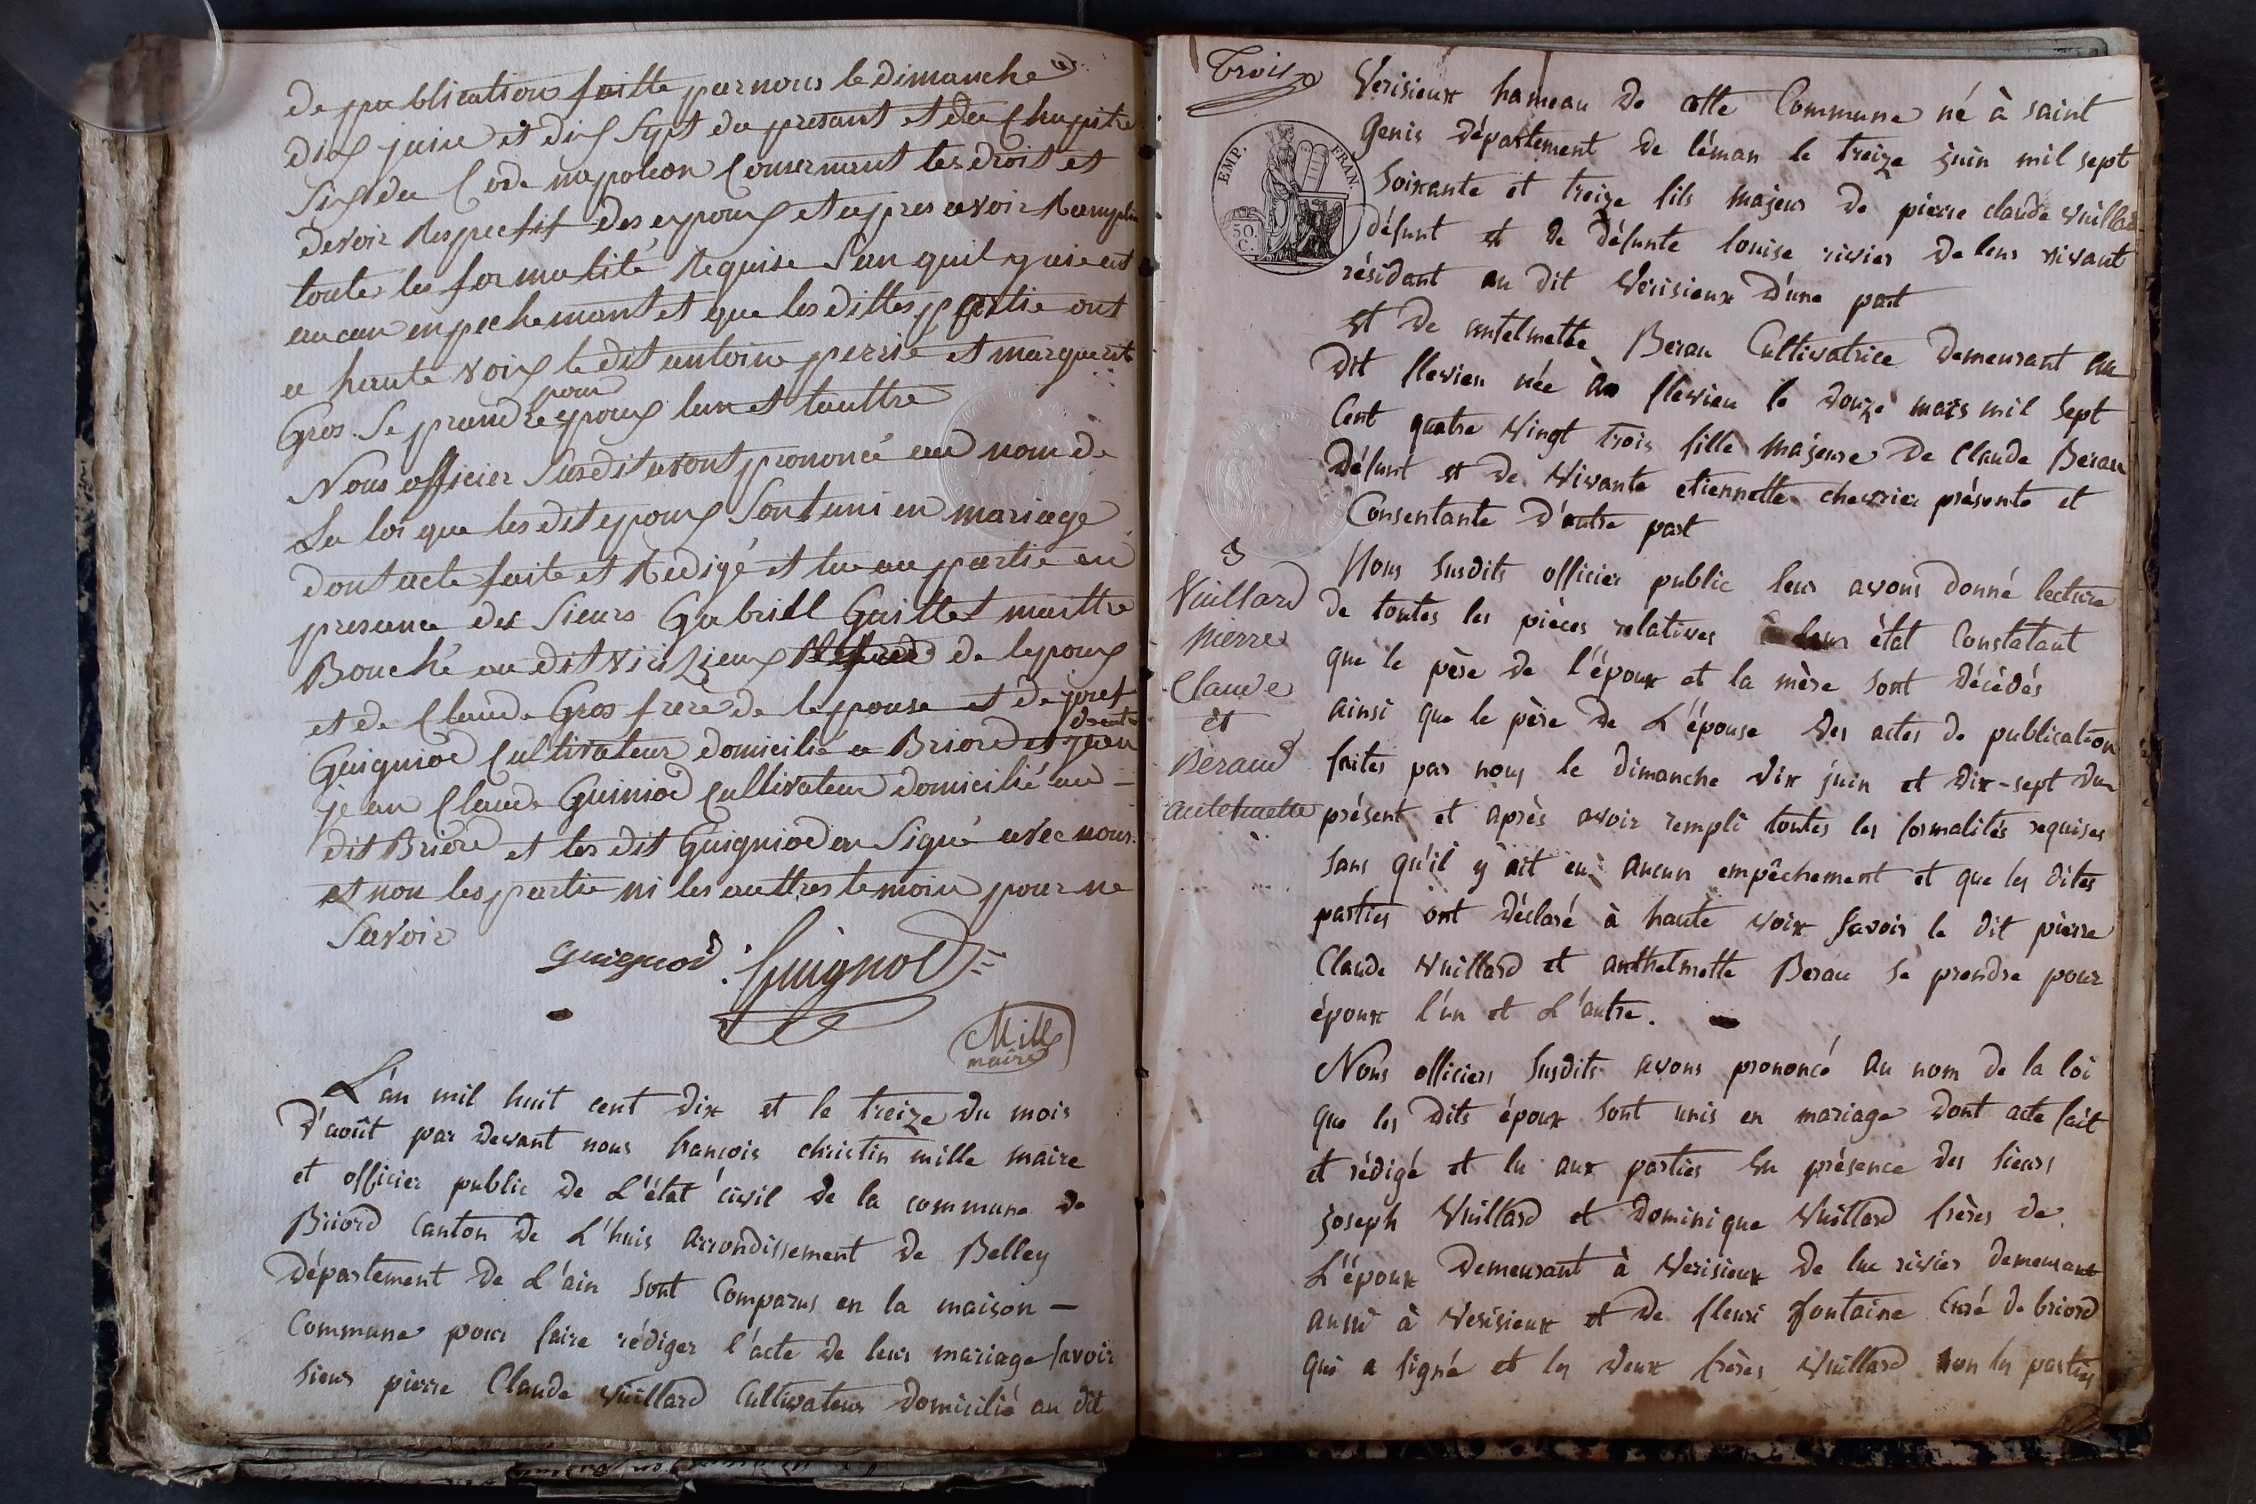 de publication faitte par nous le dimanche
dix juin et dix sept du presant et du Chapitre
six du Code napoleon Consernant les droit et
devoir Respectif des epoux et apres avoir Ramplis
toute les formalité Requise San quil y aie eut
aucun enpechemant et que les dittes partie ont
a haute voix le dit antoine perrie et marguerite
pour
Gros Se prandre epoux lun et lauttre
Nous officier Susdit avont prononcé aud nom de
La loi que les dit epoux Sont uni en mariage
dont acte faite et Redigé et lu au partie en
presance des Sieurs Gabriell Gaillet maittre
Bouché au dit de lepoux
et de Claude Gros frere de lepouse et de
Guigniod Cultivateur domicilié a Briord et
jean Claude Guiniod Cultivateur domicilié au –
dit Briord et les dit Guigniod on Signé avec nous
et non les partie ni les auttres temoin pour ne
Savoir
guigniod Guignod
Mille
maire
L'an mil huit cent dix et le treize du mois
d'août par devant nous françois christin mille maire
et officier public de L'état civil de la commune de
Briord Canton de L'huis arrondissement de Belley
département de L'ain sont Comparus en la maison –
Commune pour faire rédiger l'acte de leur mariage savoir
sieur pierre Claude vuillard Cultivateur domicilié au dit
Trois
EMP. FRAN.
50.
C.
Verisieux hameau de cette Commune né à saint
genis département de léman le treize juin mil sept
soixante et treize fils majeur de pierre claude vuillard
défunt et de défunte louise rivier de leur vivant
résidant au dit Verisieux d'une part
et de antelmette Berau Cultivatrice demeurant au
dit flevieu née à flevieu le douze mars mil sept
Cent quatre vingt trois fille majeure de Claude Berau
défunt et de vivante etiennette chevrier présente et
Consentante d'autre part
3
Vuillard
pierre
Claude
et
Beraud
antelmette
Nous susdits officier public leur avons donné lecture
de toutes les pièces relatives à leur état Constatant
que le père de l'époux et la mère sont décédés
ainsi que le père de L'épouse des actes de publication
faites par nous le dimanche dix juin et dix-sept du
présent et après avoir rempli toutes les formalités requises
sans qu'il y ait eu aucun empêchement et que les dites
parties ont déclaré à haute voix savoir le dit pierre
Claude vuillard et anthelmette Berau se prendre pour
époux l'un et L'autre.
Nous officiers susdits avons prononcé au nom de la loi
que les dits époux sont unis en mariage dont acte fait
et rédigé et lu aux parties en présence des sieurs
joseph Vuillard et dominique Vuillard frères de
L'époux demeurant à Verisieux de luc rivier demeurant
aussi à Verisieux et de fleuri fontaine curé de briord
qui a signé et les deux frères vuillard non les parties